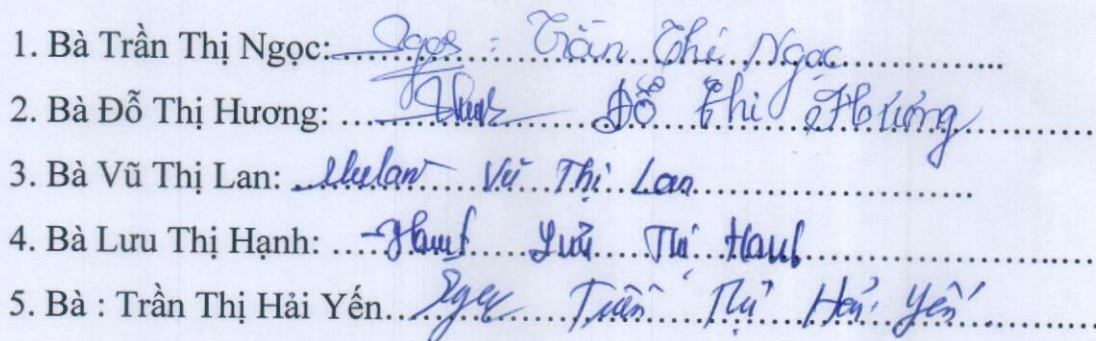 1. Bà Trần Thị Ngọc: Ngọc : Trần Thị Ngọc
2. Bà Đỗ Thị Hương: Đỗ Thị Hương
3. Bà Vũ Thị Lan: Vũ Thị Lan
4. Bà Lưu Thị Hạnh: Hạnh Lưu Thị Hạnh
5. Bà : Trần Thị Hải Yến Trần Thị Hải Yến